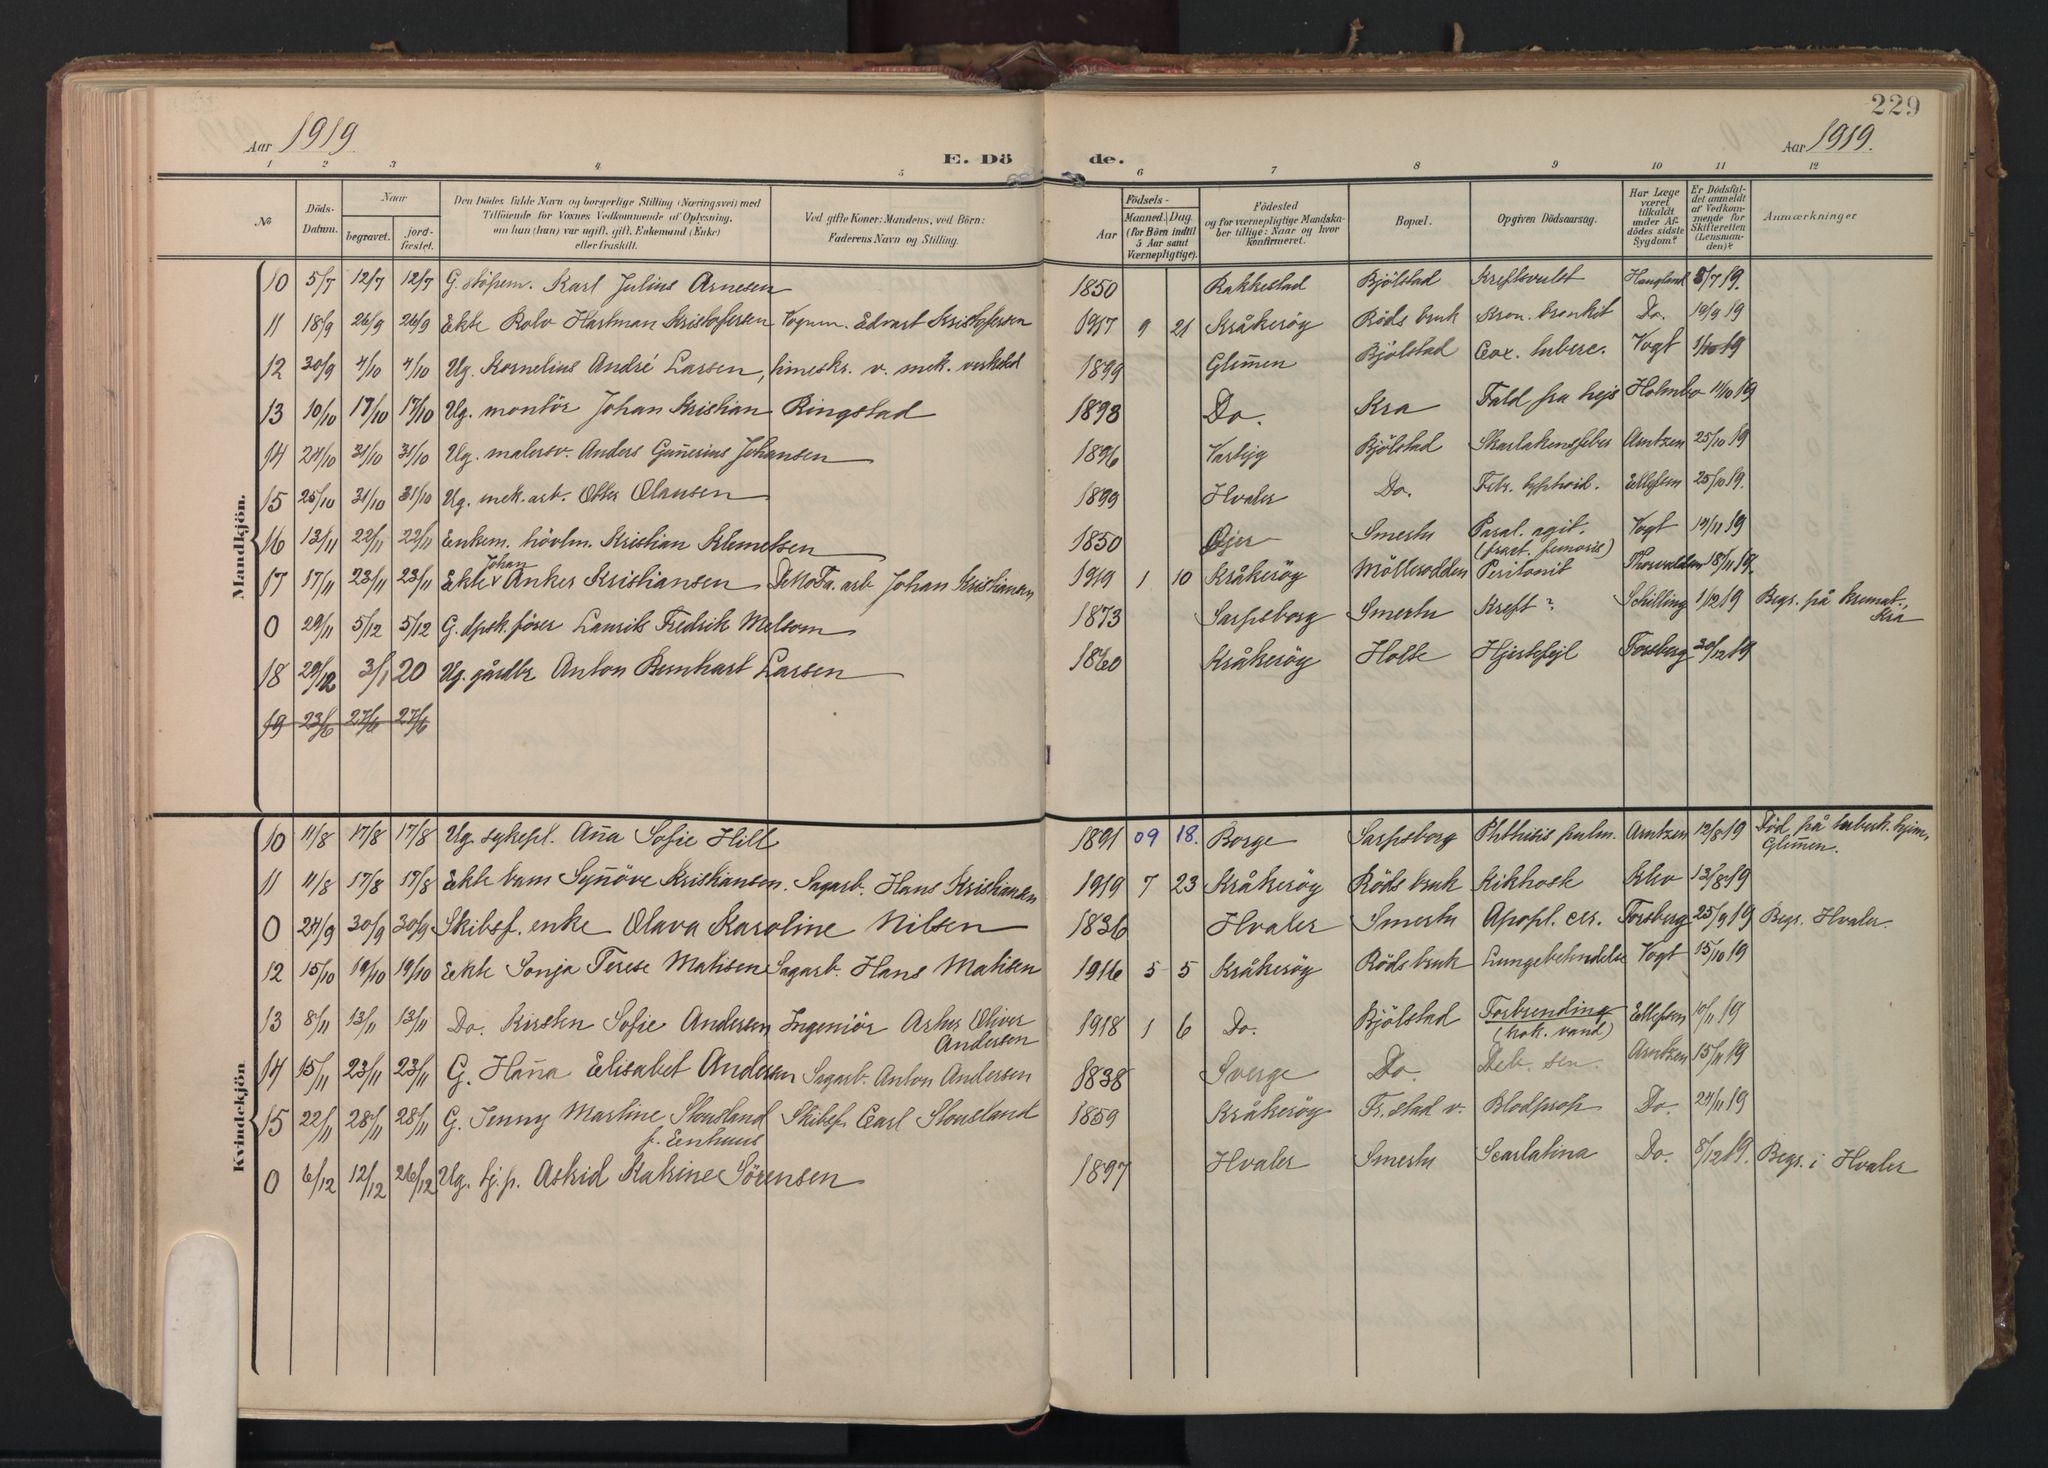 229
Aar 1919
E. Dö
de.
Aar 1919.
1 2 3 4 5 6 7 8 9 10 11 12
No
Döds-Datum.
Naar
begravet.
jord-fæstet.
Den Dödes fulde Navn og borgerlige Stilling (Næringsvei) med Tilföiende for Voxnes Vedkommende af Oplysning, om han (hun) var ugift, gift, Enkemand (Enke) eller fraskilt.
Ved gifte Koner: Mandens, ved Börn: Faderens Navn og Stilling.
Födsels-
Aar
Maaned. Dag.
(for Börn indtil 5 Aar samt Værnepligtige).
Födested og for værnepligtige Mandskaber tillige: Naar og hvor konfirmeret.
Bopæl.
Opgiven Dödsaarsag.
Har Læge været tilkaldt under Afdödes sidste Sygdom?
Er Dödsfaldet anmeldt af Vedkommende for Skifteretten (Lensmanden)?
Anmærkninger
Mandkjön.
10 5/7 12/7 12/7 G. stöpem. Karl Julius Arnesen 1850 Rakkestad Bjölstad Kreftsvulst Haugland 5/7 19.
11 18/9 26/9 26/9 Ekte Rolv Hartman Kristofersen Vognm. Edvart Kristofersen 1917 9 21 Kråkeröy Röds bruk Kron. bronkit Do. 19/9 19
12 30/9 4/10 4/10 Ug. Kornelius André Larsen, timeskr. v. mek. verksted 1899 Glem̄en Bjölstad Cox. tuberc. Vogt 1/10 19
13 10/10 17/10 17/10 Ug. montör Johan Kristian Ringstad 1893 Do. Kra Fald fra heis Holmbo 11/10 19
14 24/10 31/10 31/10 Ug. malersv. Anders Gun̄erius Johansen 1896 Varteig Bjölstad Skarlakensfeber Arntzen 25/10 19
15 25/10 31/10 31/10 Ug. mek. arb. Otter Olausen 1899 Hvaler Do. Febr. typhoid. Ellefsen 25/10 19.
16 13/11 22/11 22/11 Enkem. hövlm. Kristian Klemetsen 1850 Öjer Smertu Paral. agit. Vogt 14/11 19
(fract. femoris)
Johan
17 17/11 23/11 23/11 Ekte v Anker Kristiansen arb Johan Kristiansen 1919 1 10 Kråkeröy Mölleroddden Peritonit Thorvaldsen 18/11 19.
0 29/11 5/12 5/12 G. dpsk. förer Laurits Fredrik Melsom 1873 Sarpsborg Smertu Kreft ? Schilling 1/12 19 Begr. på kremat., Kra
18 29/12 3/1 20 Ug. gårdbr Anton Bernhart Larsen 1860 Kråkeröy Holte Hjertefejl Forsberg 30/12 19
19 23/6 27/6 27/6
Kvindekjön
10 11/8 17/8 17/8 Ug. sykepl. An̄a Sofie Hill 1891 09 18. Borge Sarpsborg Phthisis pulm. Arntzen 12/8 19 Död på tuberk. hjem, Glem̄en.
11 11/8 17/8 17/8 Ekte barn Syn̄öve Kristiansen. Sagarb. Hans Kristiansen 1919 7 23 Kråkeröy Röds bruk Kikhoste 13/8 19
0 24/9 30/9 30/9 Skibsf. enke Olava Karoline Nilsen 1836 Hvaler Smertu Apopl. cer. Forsberg 25/9 19 Begr. Hvaler.
12 15/10 19/10 19/10 Ekte Sonja Terese Matisen Sagarb. Hans Matisen 1916 5 5 Kråkeröy Röds bruk Lungebetendelse Vogt 15/10 19
13 8/11 13/11 13/11 Do. Kirsten Sofie Andersen Ingeniör Oliver Andersen 1918 1 6 Do. Bjölstad Forbrending Ellefsen 10/11 19
(kok. vand)
14 15/11 23/11 23/11 G. Han̄a Elisabet Andersen Sagarb. Anton Andersen 1838 Sverge Do. Deb. sen. Arntzen 15/11 19
15 22/11 28/11 28/11 G. Jenny Martine Stousland Skibsf. Carl Stousland 1859 Kråkeröy Fr.stad v. Blodprop Do. 24/11 19
f. Enhuus
0 6/12 12/12 26/12 Ug. tj.p. Astrid Katrine Sörensen 1897 Hvaler Smertu Scarlatina Do. 8/12 19. Begr. i Hvaler